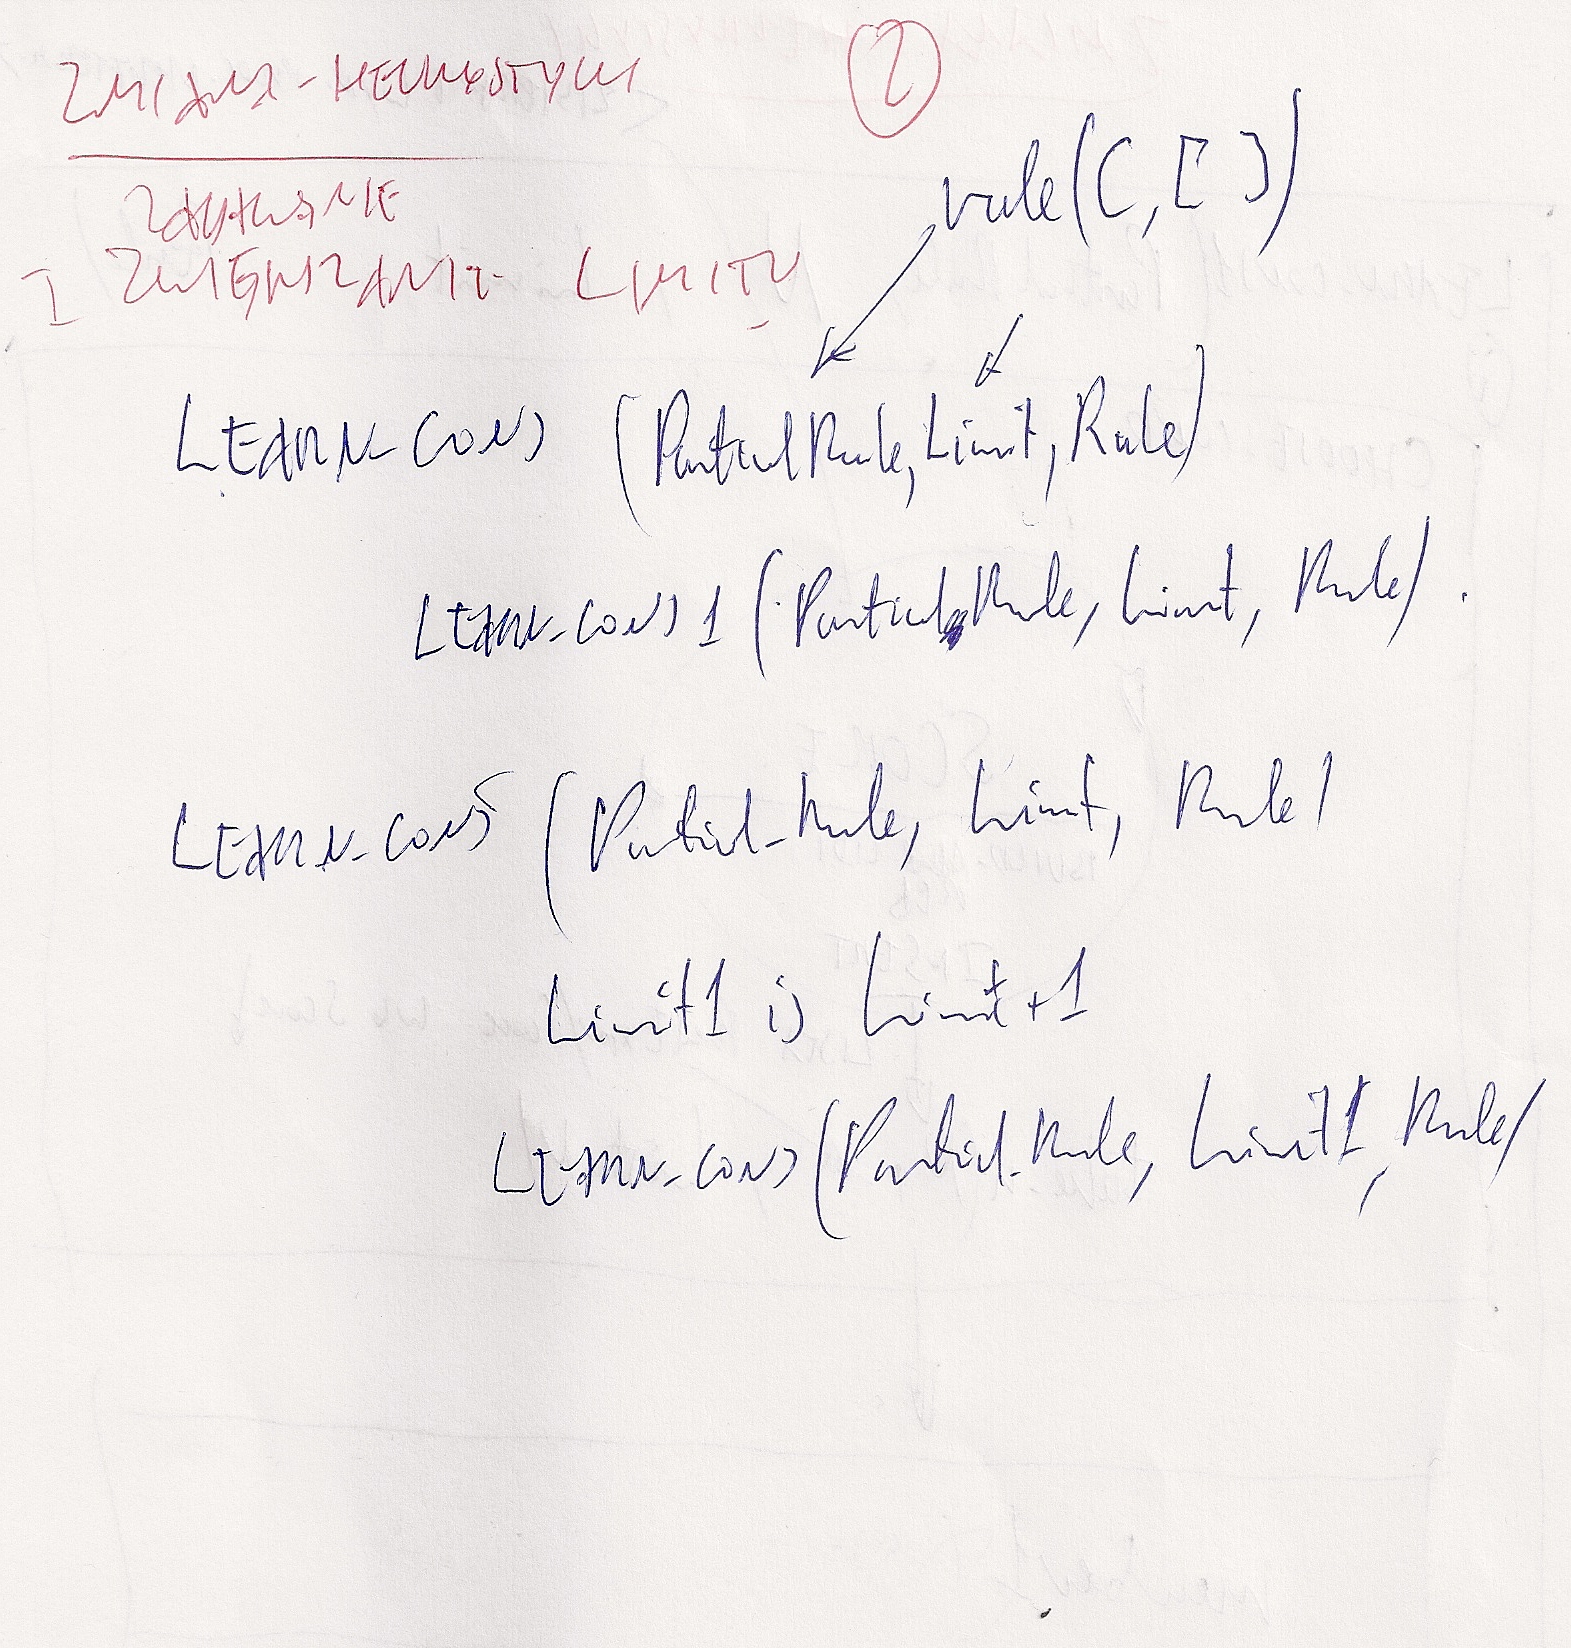 ZMIANA-HEURYSTYKI
2
ZADANIE
I ZWIĘKSZANIE LIMITU
rule(C, [ ])
LEARN-CONJ (PartialRule, Limit, Rule)
LEARN-CONJ1 (PartialRule, Limit, Rule) .
LEARN-CONJ (Partial_Rule, Limit, Rule)
Limit1 is Limit+1
LEARN-CONJ (Partial_Rule, Limit1, Rule)